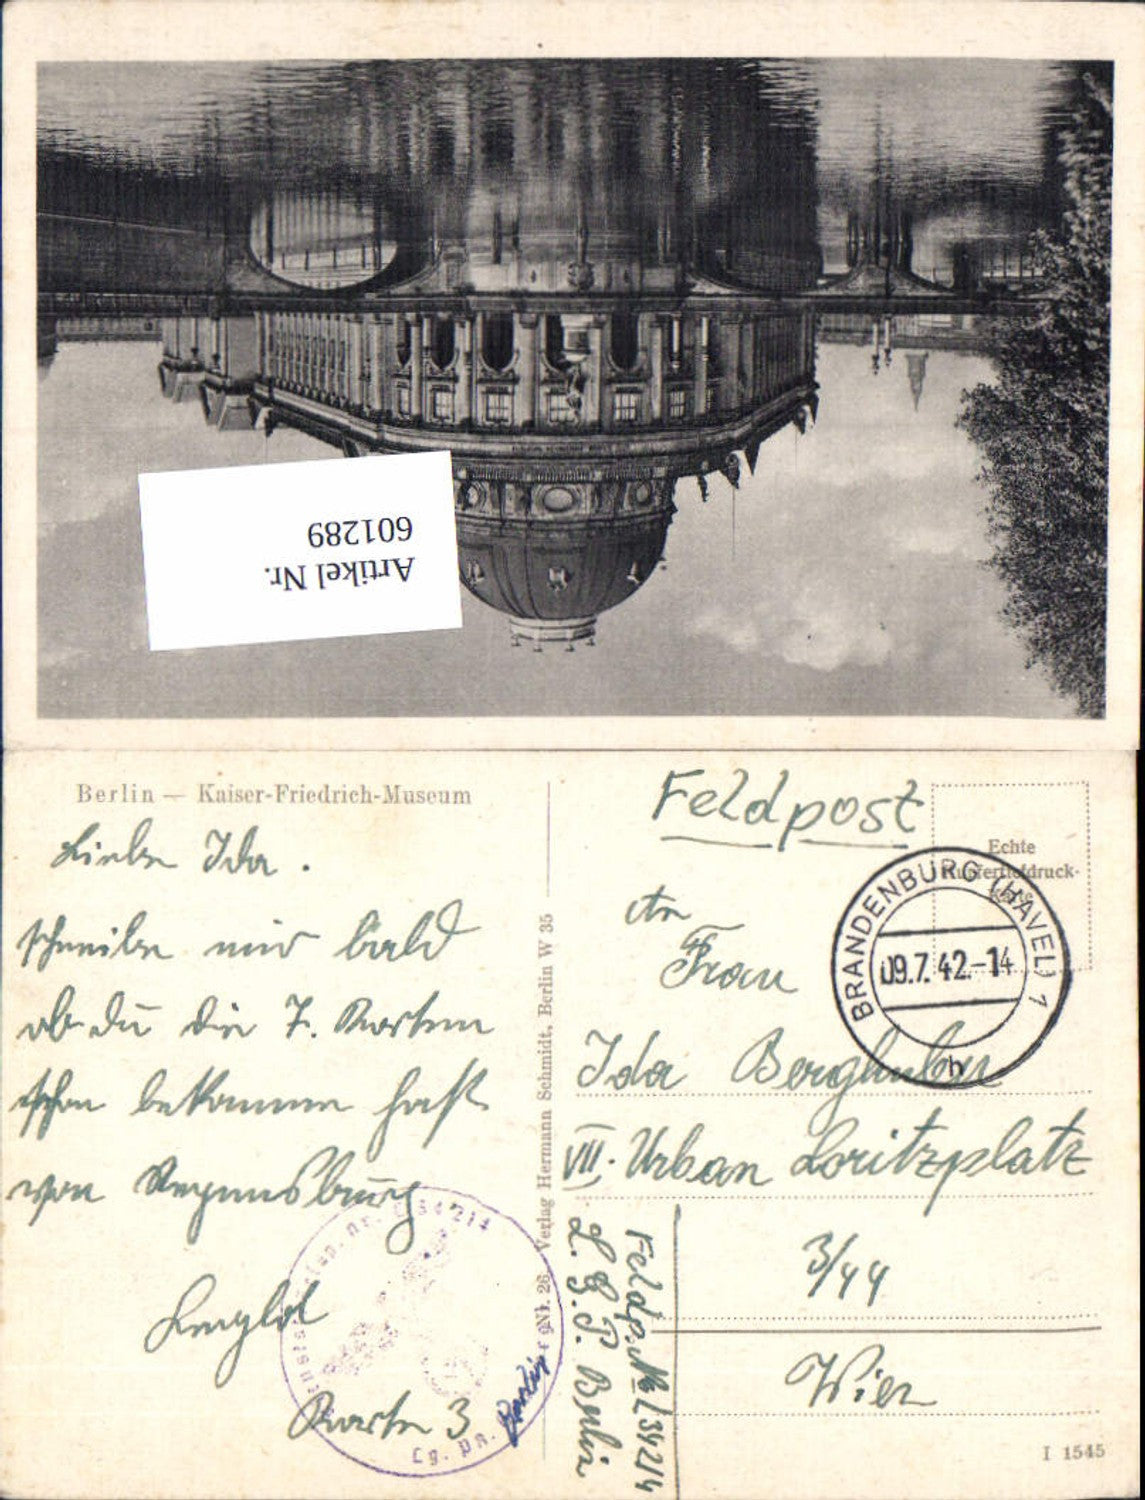 Artikel Nr.
601289
Berlin — Kaiser-Friedrich-Museum
Liebe Ida.
schreibe mir bald
ob du die 7. Karten
schon bekommen hast
von Regensburg
Leopold
Karte 3
Verlag Hermann Schmidt, Berlin W 35
Nk. 26
Feldpost
Echte
Kupfertiefdruck-
Karte
BRANDENBURG (HAVEL) 1
09.7.42.-14
h
An
Frau
Ida
VII. Urban Loritzplatz
3/44
Wien
Feldp. Nr L34214
L.G.P. Berlin
Lg. PA.
I 1545